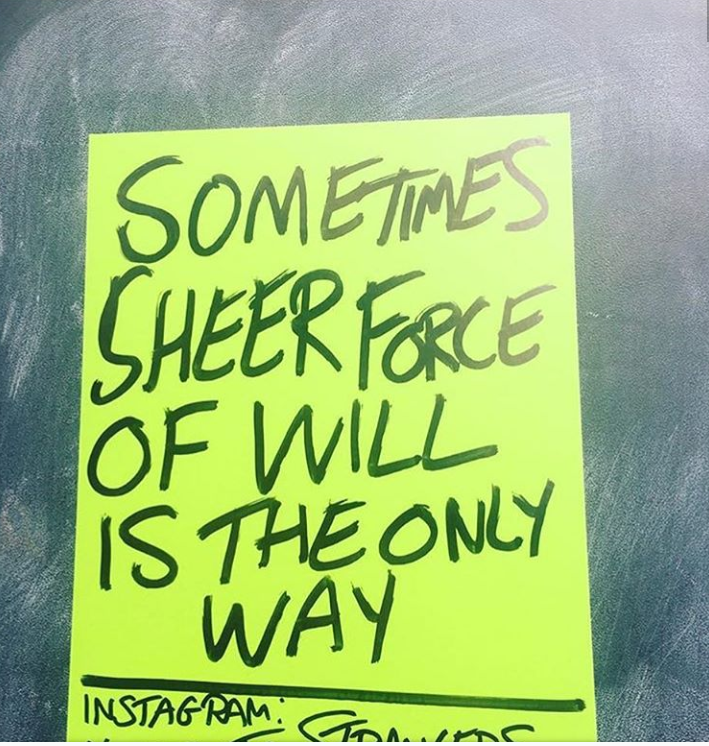 SOMETIMES
SHEER FORCE
OF WILL
IS THE ONLY
WAY
INSTAGRAM:
STRANGERS